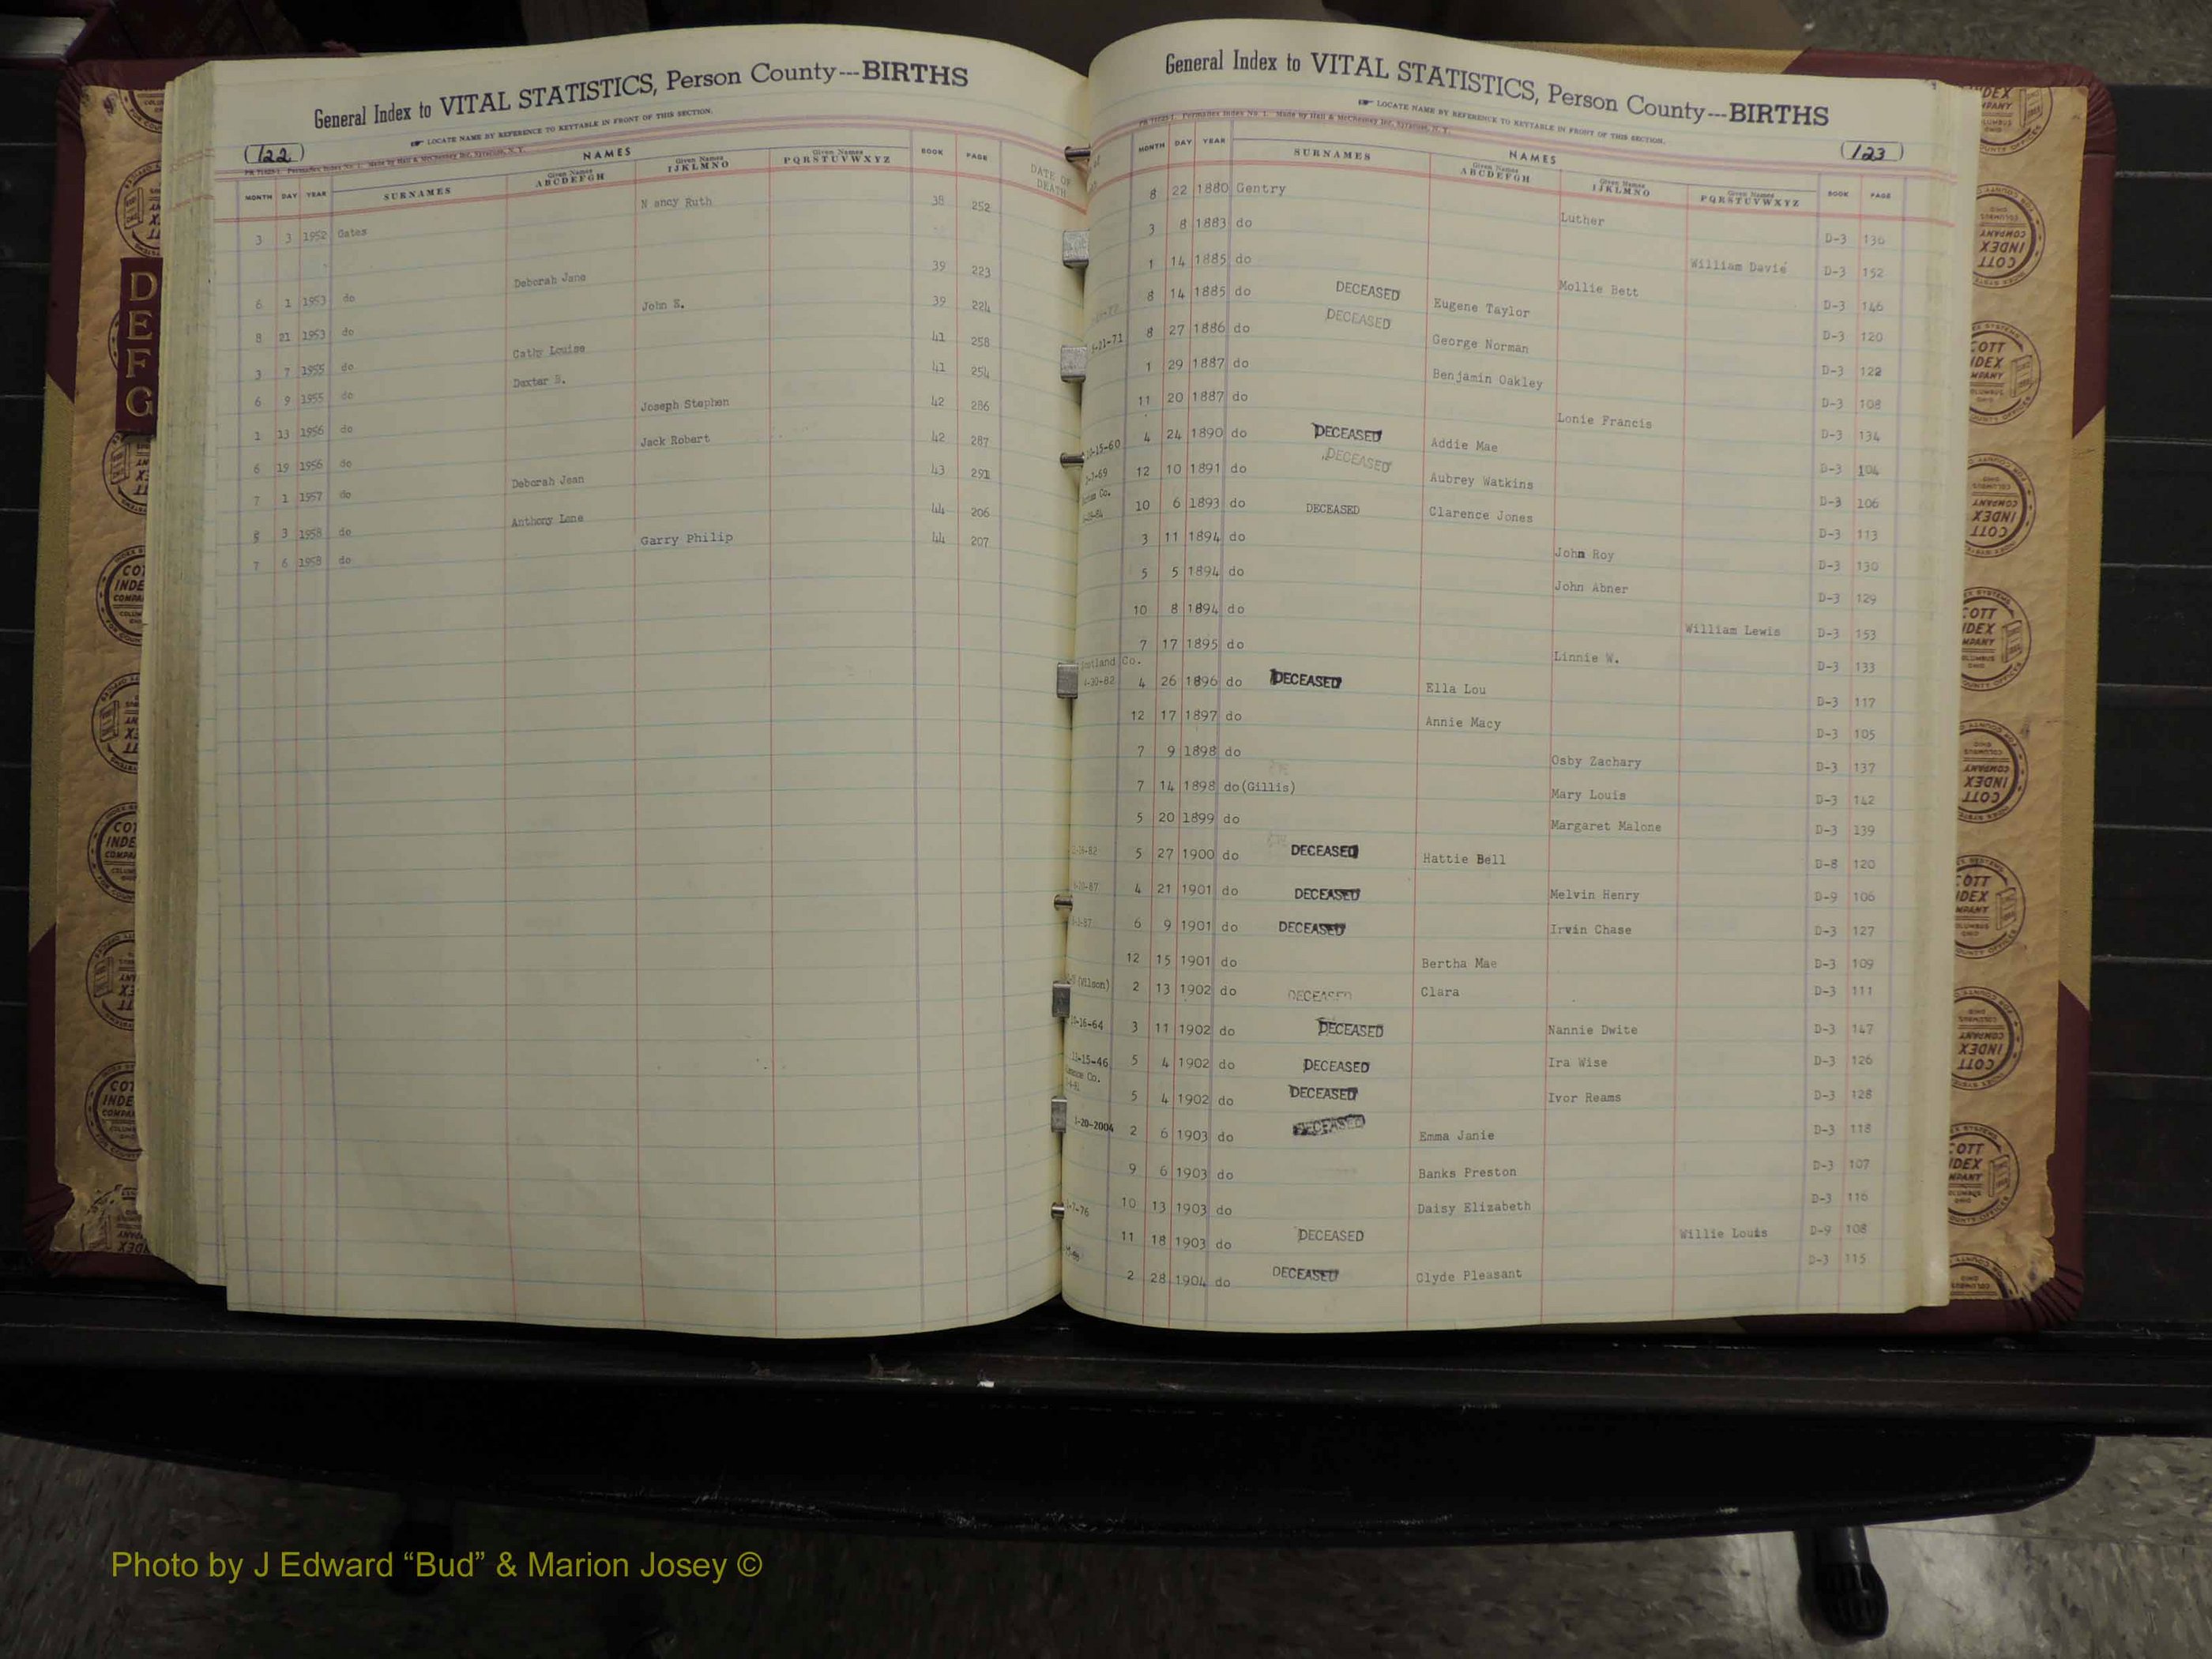 General Index to VITAL STATISTICS, Person County---BIRTHS
LOCATE NAME BY REFERENCE TO KEYTABLE IN FRONT OF THIS SECTION.
(122)
NAMES
MONTH DAY YEAR SURNAMES Given Names ABCDEFGH Given Names IJKLMNO Given Names PQRSTUVWXYZ BOOK PAGE DATE OF DEATH
3 3 1952 Gates Nancy Ruth 38 252
6 1 1953 do Deborah Jane 39 223
8 21 1953 do John E. 39 224
3 7 1955 do Cathy Louise 41 258
6 9 1955 do Dexter B. 41 254
1 13 1956 do Joseph Stephen 42 286
6 19 1956 do Jack Robert 42 287
7 1 1957 do Deborah Jean 43 291
3 1958 do Anthony Lane 44 206
7 6 1958 do Garry Philip 44 207
D
E
F
G
General Index to VITAL STATISTICS, Person County---BIRTHS
LOCATE NAME BY REFERENCE TO KEYTABLE IN FRONT OF THIS SECTION.
(123)
NAMES
MONTH DAY YEAR SURNAMES Given Names ABCDEFGH Given Names IJKLMNO Given Names PQRSTUVWXYZ BOOK PAGE
8 22 1880 Gentry Luther D-3 136
3 8 1883 do William Davie D-3 152
1 14 1885 do Mollie Bett D-3 146
8 14 1885 do DECEASED Eugene Taylor D-3 120
8 27 1886 do DECEASED George Norman D-3 122
1 29 1887 do Benjamin Oakley D-3 108
11 20 1887 do Lonie Francis D-3 134
4 24 1890 do DECEASED Addie Mae D-3 104
12 10 1891 do DECEASED Aubrey Watkins D-3 106
10 6 1893 do DECEASED Clarence Jones D-3 113
3 11 1894 do John Roy D-3 130
5 5 1894 do John Abner D-3 129
10 8 1894 do William Lewis D-3 153
7 17 1895 do Linnie W. D-3 133
4 26 1896 do DECEASED Ella Lou D-3 117
12 17 1897 do Annie Macy D-3 105
7 9 1898 do Osby Zachary D-3 137
7 14 1898 do(Gillis) Mary Louis D-3 142
5 20 1899 do Margaret Malone D-3 139
5 27 1900 do DECEASED Hattie Bell D-8 120
4 21 1901 do DECEASED Melvin Henry D-9 106
6 9 1901 do DECEASED Irvin Chase D-3 127
12 15 1901 do Bertha Mae D-3 109
(Wilson) 2 13 1902 do DECEASED Clara D-3 111
3 11 1902 do DECEASED Nannie Dwite D-3 147
11-15-46 5 4 1902 do DECEASED Ira Wise D-3 126
5 4 1902 do DECEASED Ivor Reams D-3 128
1-20-2004 2 6 1903 do DECEASED Emma Janie D-3 118
9 6 1903 do Banks Preston D-3 107
10 13 1903 do Daisy Elizabeth D-3 116
11 18 1903 do DECEASED Willie Louis D-9 108
2 28 1904 do DECEASED Clyde Pleasant D-3 115
Photo by J Edward “Bud” & Marion Josey ©